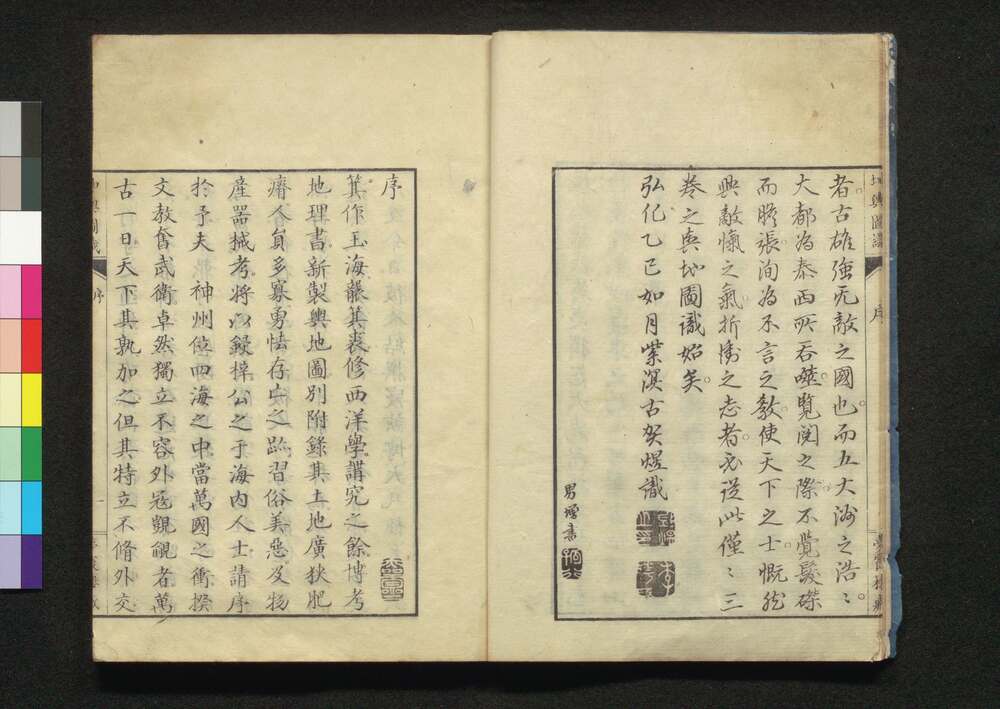 者古雄強无敵之國也而五大洲之浩〻
大都為泰西所吞噬覽閱之際不覺髮磔
而眥張洵為不言之教使天下之士慨然
興敵愾之氣折衝之志者必從此僅〻三
卷之輿地圖識始矣
弘化乙巳如月紫溟古賀煜識
男增書
序
箕作玉海龍箕裘修西洋學講究之餘博考
地理書新製輿地圖別附錄其土地廣狹肥
瘠人員多寡勇怯存亡之跡習俗美惡及物
產器械考將以録梓公之于海内人士請序
於予夫神州位四海之中當萬國之衝揆
文教奮武衛卓然獨立不容外冦覬覦者萬
古一日天下其孰加之但其特立不脩外交
序
序